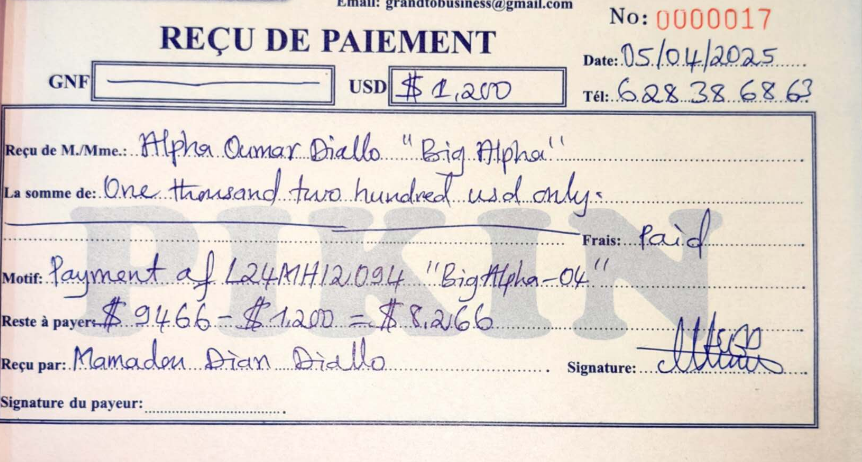 Email: grandtobusiness@gmail.com
No: 0000017
REÇU DE PAIEMENT
Date: 05/04/2025
GNF
USD $ 1,200
Tél: 628 38 68 63
Reçu de M./Mme.: Alpha Oumar Diallo "Big Alpha"
La somme de: One thousand two hundred usd only.
Frais: Paid
PIKIN
Motif: Payment of L24MH12094 "BigAlpha-04"
Reste à payer: $ 9466 - $ 1,200 = $ 8,266
Reçu par: Mamadou Dian Diallo
Signature:
Signature du payeur: